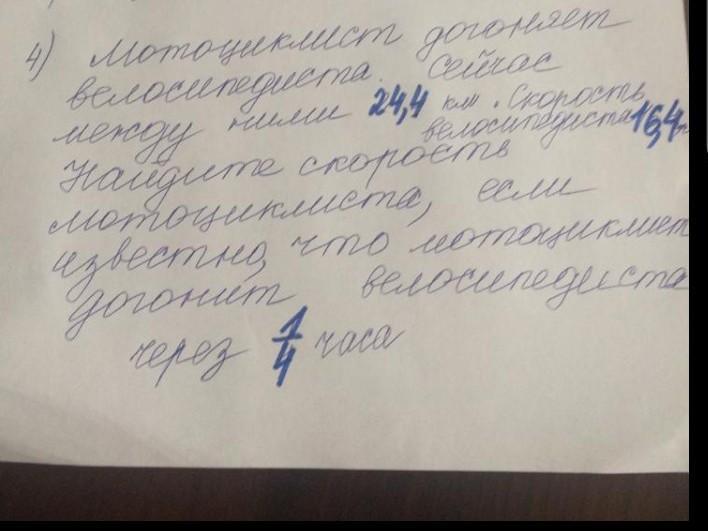 4) Мотоциклист догоняет
велосипедиста. Сейчас
между ними 24,4 км. Скорость
велосипедиста 16,4
Найдите скорость
мотоциклиста, если
известно, что мотоциклист
догонит велосипедиста
через 1/4 часа